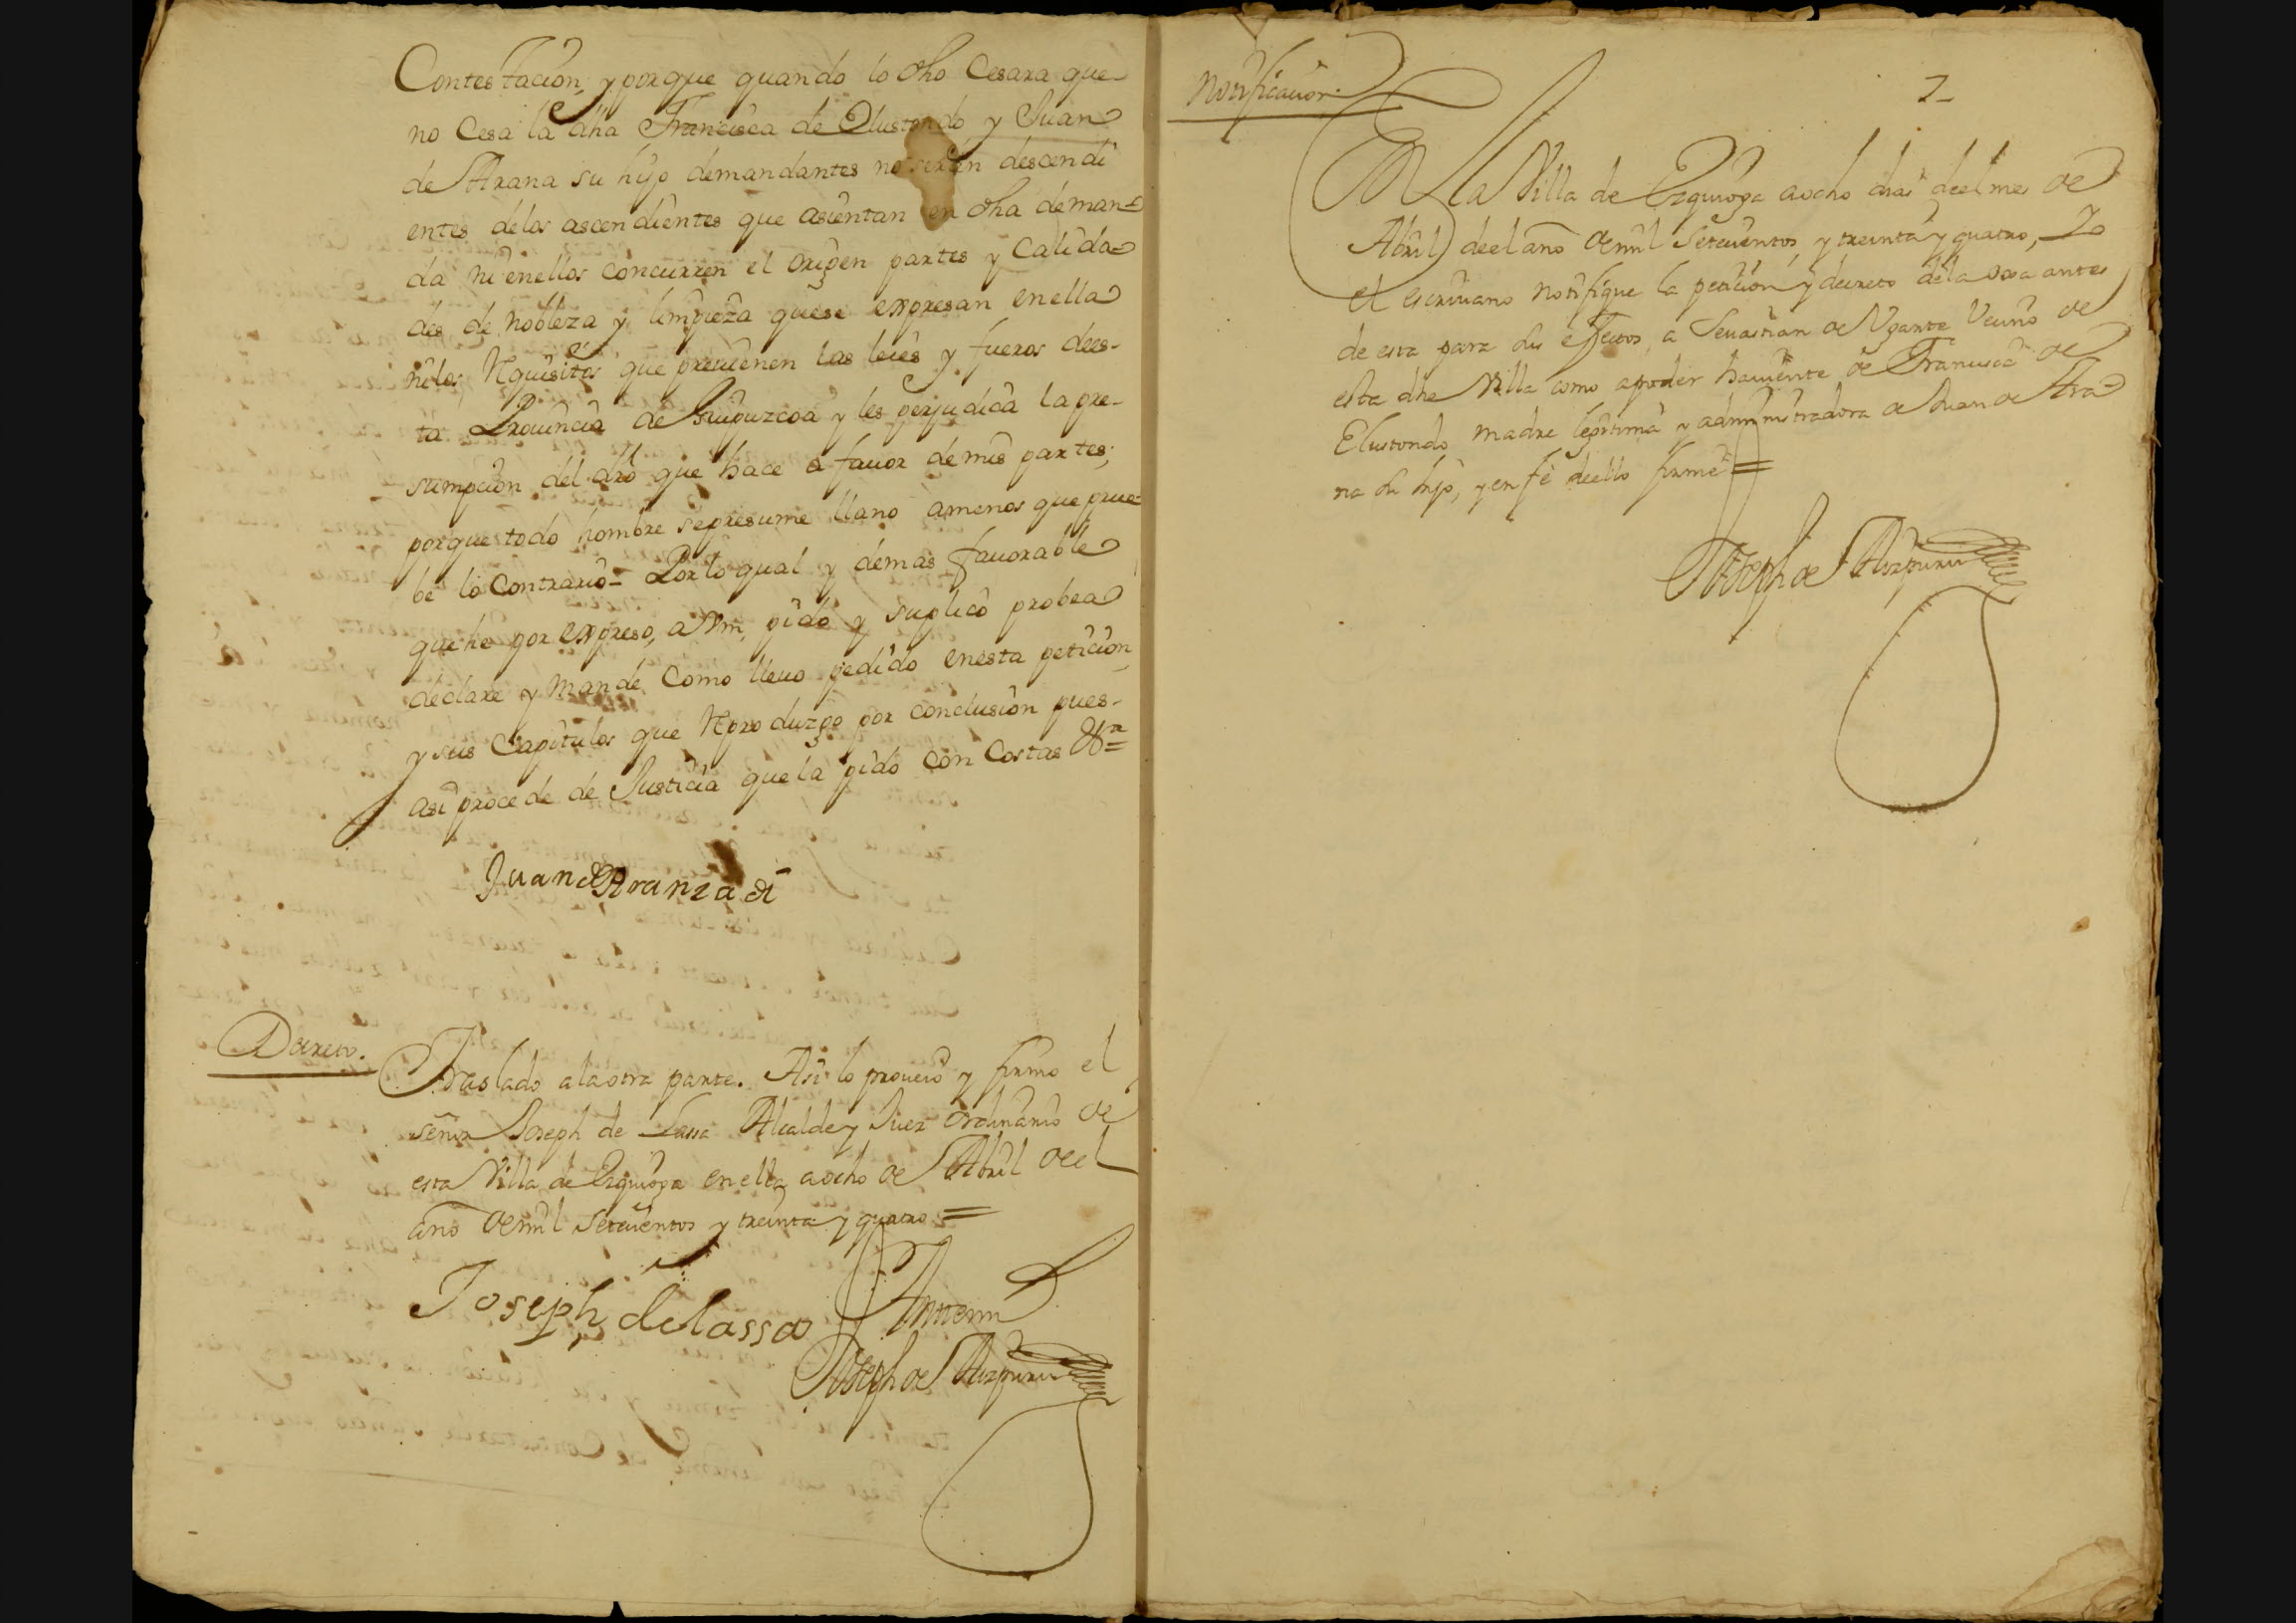 Contestacion, y porque quando lo dho Cesara que
no Cesa la dha Francisca de Elustondo y Juan
de Arana su hijo demandantes no serian descendi
entes delos ascendientes que asientan en dha deman=
da ni enellos concurren el origen partes y Calida=
des de nobleza y limpieza quese expresan enella
nilos Requisitos que preuienen las leies y fueros dees-
ta Prouincia de Guipuzcoa y les perjudica la pre-
sumpcion del dro que hace a fauor de mis partes;
porque todo hombre sepresume llano amenos que prue=
be lo Contrario= Por lo qual y demas fauorable
que he por expreso, a Vm, pido y suplico probea
declare y mande Como lleuo pedido enesta peticion
y sus Capitulos que Reproduzgo por conclusion pues-
asi procede de Justicia que la pido con Costas &ra=
Juan de Aranzadi
Decreto.
Traslado ala otra parte. Asi lo proueio y firmo el
señor Joseph de Lassa Alcalde y Juez ordinario de
esta Villa de Ezquioga enella a ocho de Abril deel
año de mil setecientos y treinta y quatro =
Joseph de lassa
Ante mi
Joseph de Aizpuru
2
Notificacion.
En La Villa de Ezquioga a ocho dias deel mes de
Abril deel año de mil setecientos, y treinta y quatro, Yo
el escriuano notifique la peticion y decreto dela oja antes
de esta para sus efectos, a Seuastian de Ugarte Vecino de
esta dha Villa como a poder hauiente de Francisca de
Elustondo, madre legitima y administradora de Juan de Ara=
na su hijo, y en fe deello firme =
Joseph de Aizpuru